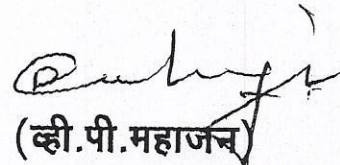 (व्ही.पी.महाजन)